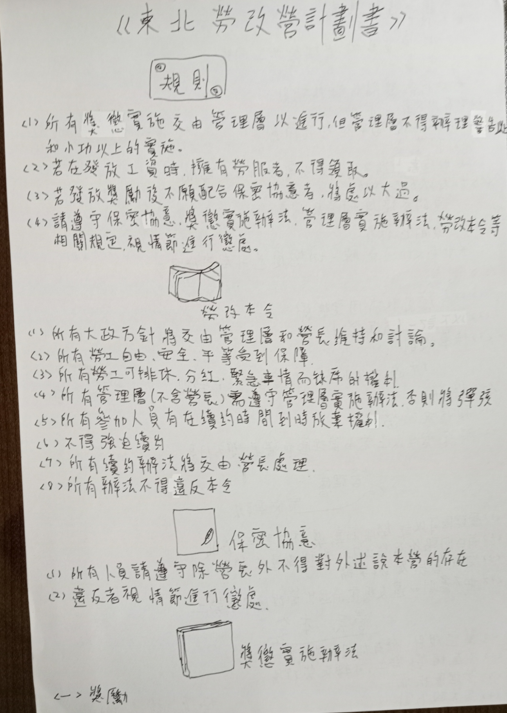 《東北勞改營計劃書》
規則
(1) 所有獎懲實施交由管理層以進行,但管理層不得辦理警告處
和小功以上的實施。
(2) 若在發放工資時,擁有勞服者,不得領取。
(3) 若發放獎勵後不願配合保密協意者,將處以大過。
(4) 請遵守保密協意、獎懲實施辦法、管理層實施辦法、勞改本令等
相關規定,視情節進行懲處。
勞改本令
(1) 所有大政方針將交由管理層和營長維持和討論。
(2) 所有勞工自由、安全、平等受到保障.
(3) 所有勞工可排休、分紅、緊急事情而缺席的權利
(4) 所有管理層(不含營長)需遵守管理層實施辦法,否則將彈劾
(5) 所有參加人員有在續約時間到時放棄權利.
(6) 不得強迫續約
(7) 所有續約辦法將交由營長處理.
(8) 所有辦法不得違反本令
保密協意
(1) 所有人員請遵守除營長外不得對外述說本營的存在
(2) 違反者視情節進行懲處.
獎懲實施辦法
(一) 獎勵